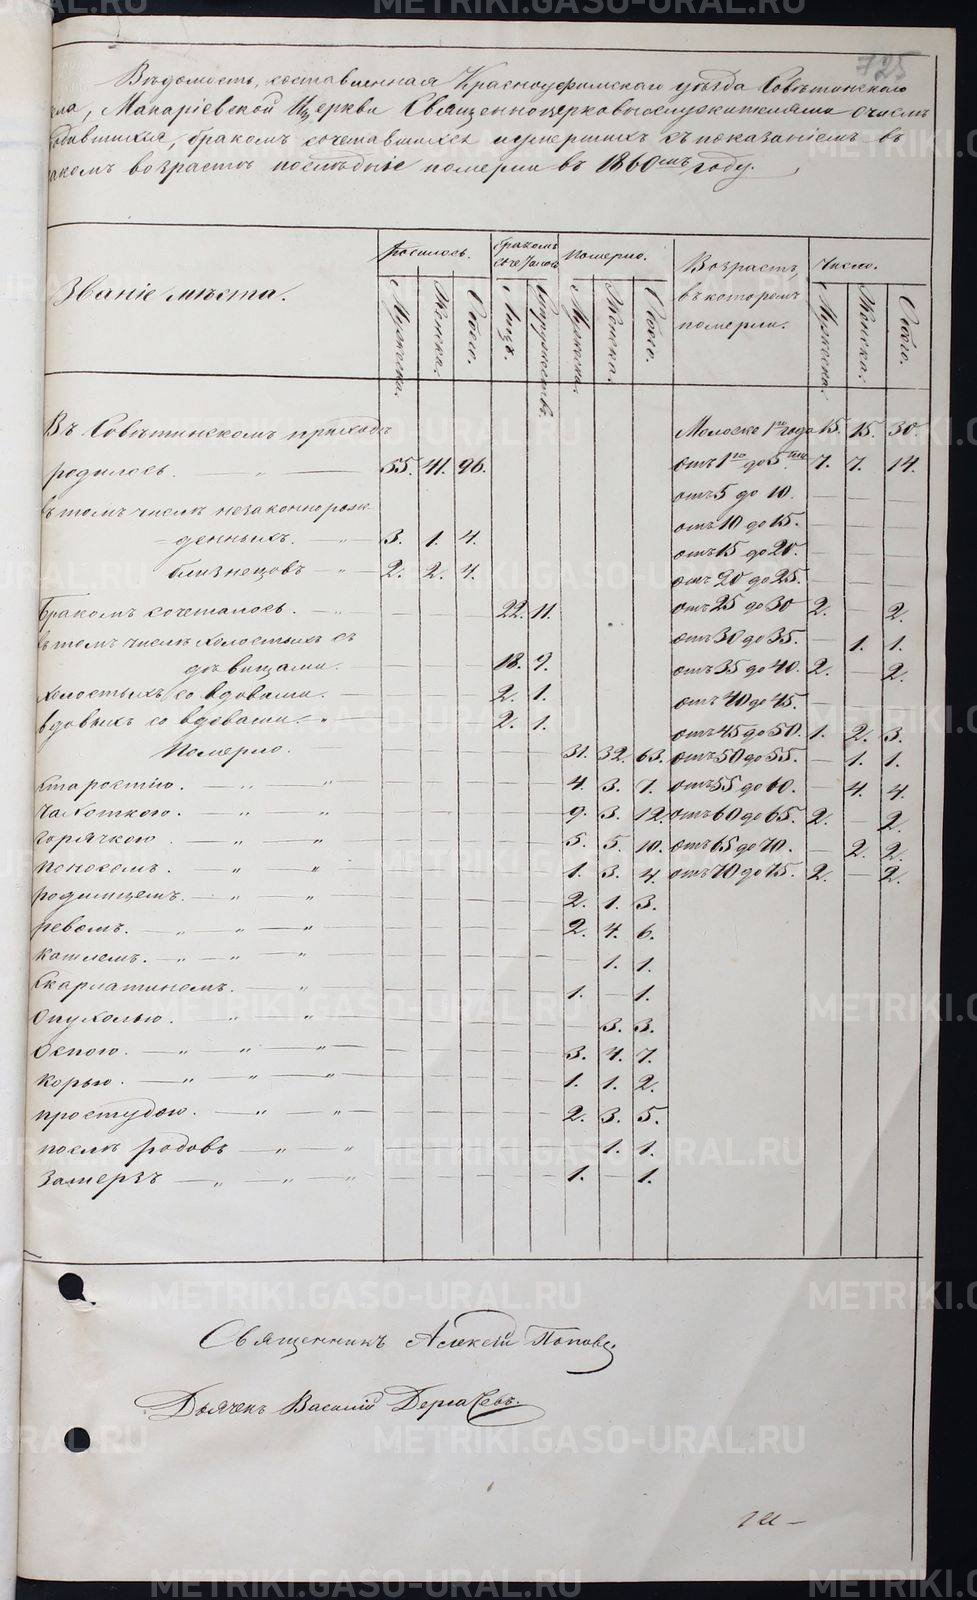 725
Вѣдомость, составленная Красноуфимскаго уѣзда Совѣтинскаго
села, Макаріевской Церкви Священноцерковнослужителями о числѣ
родившихся, бракомъ сочетавшихся и умершихъ съ показаніемъ въ
какомъ возрастѣ послѣдніе померли въ 1860мъ году.
Званіе мѣста. Родилось. Бракомъ сочеталось Померло. Возрастъ, въ которомъ померли. Число.
Мужеска. Женска. Обоего. Лицъ. Супружествъ. Мужеска. Женска. Обоего. Мужеска. Женска. Обоего.
Въ Совѣтинскомъ приходѣ Молоско 1го года 15. 15. 30.
родилось. 55. 41. 96. отъ 1го до 5ти 7. 7. 14.
въ томъ числѣ незаконнорож отъ 5 до 10. — — —
денныхъ. 3. 1. 4. отъ 10 до 15. — — —
отъ 15 до 20. — — —
близнецовъ 2. 2. 4. отъ 20 до 25. — — —
Бракомъ сочеталось. — — — 22. 11. отъ 25 до 30 2. — 2.
въ томъ числѣ холостыхъ съ отъ 30 до 35. — 1. 1.
дѣвицами. — — — 18. 9. отъ 35 до 40. 2. — 2.
холостыхъ со вдовами. — — — 2. 1. отъ 40 до 45. — — —
вдовыхъ со вдовами. — — — 2. 1. отъ 45 до 50. 1. 2. 3.
Померло. — — — — — 31. 32. 63. отъ 50 до 55. — 1. 1.
Старостію. — — — — — 4. 3. 7. отъ 55 до 60. — 4. 4.
Чахоткою. — — — — — 9. 3. 12. отъ 60 до 65. 2. — 2.
горячкою — — — — — 5. 5. 10. отъ 65 до 70. — 2. 2.
поносомъ. — — — — — 1. 3. 4. отъ 70 до 75. 2. — 2.
родимцемъ. — — — — — 2. 1. 3.
ревомъ. — — — — — 2. 4. 6.
кашлемъ. — — — — — 1. 1.
Скарлатиномъ. — — — — — 1. — 1.
Опухолью. — — — — — — 3. 3.
Оспою. — — — — — 3. 4. 7.
корью. — — — — — 1. 1. 2.
простудою. — — — — — 2. 3. 5.
послѣ родовъ — — — — — — 1. 1.
Замерзъ — — — — — 1. — 1.
Священникъ Алексій Поповъ
Дьячекъ Василій Дергачевъ.
METRIKI.GASO-URAL.RU